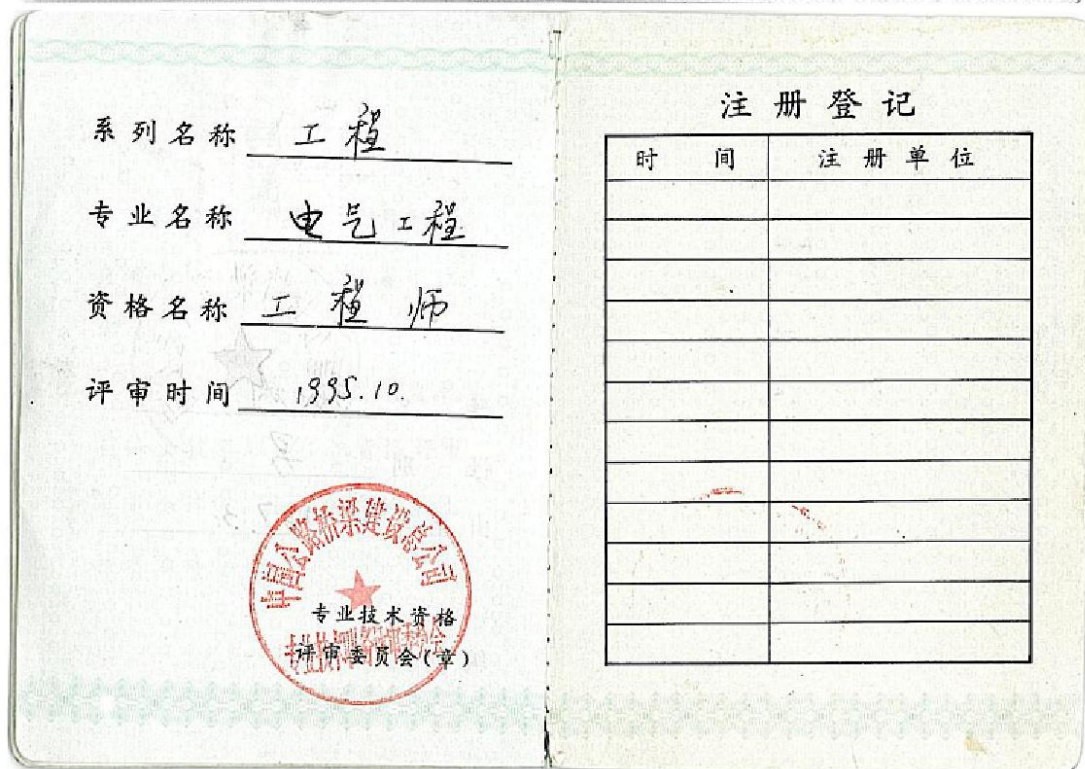 系列名称 工程
专业名称 电气工程
资格名称 工程师
评审时间 1995.10.
中国公路桥梁建设总公司
专业技术资格
评审委员会(章)
注册登记
时间 注册单位